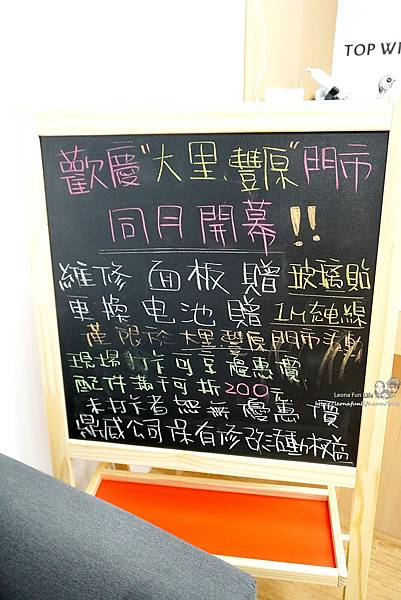 TOP WI
歡慶"大里、豐原"門市
同月開幕!!
維修 面板 贈 玻璃貼
更換 电池 贈 1M充電線
僅限於 大里豐原門市
現場打卡可享優惠價
配件 可折200元
未打卡者無優惠價
鼎威公司保有修改活動權益
Leona Fun Life